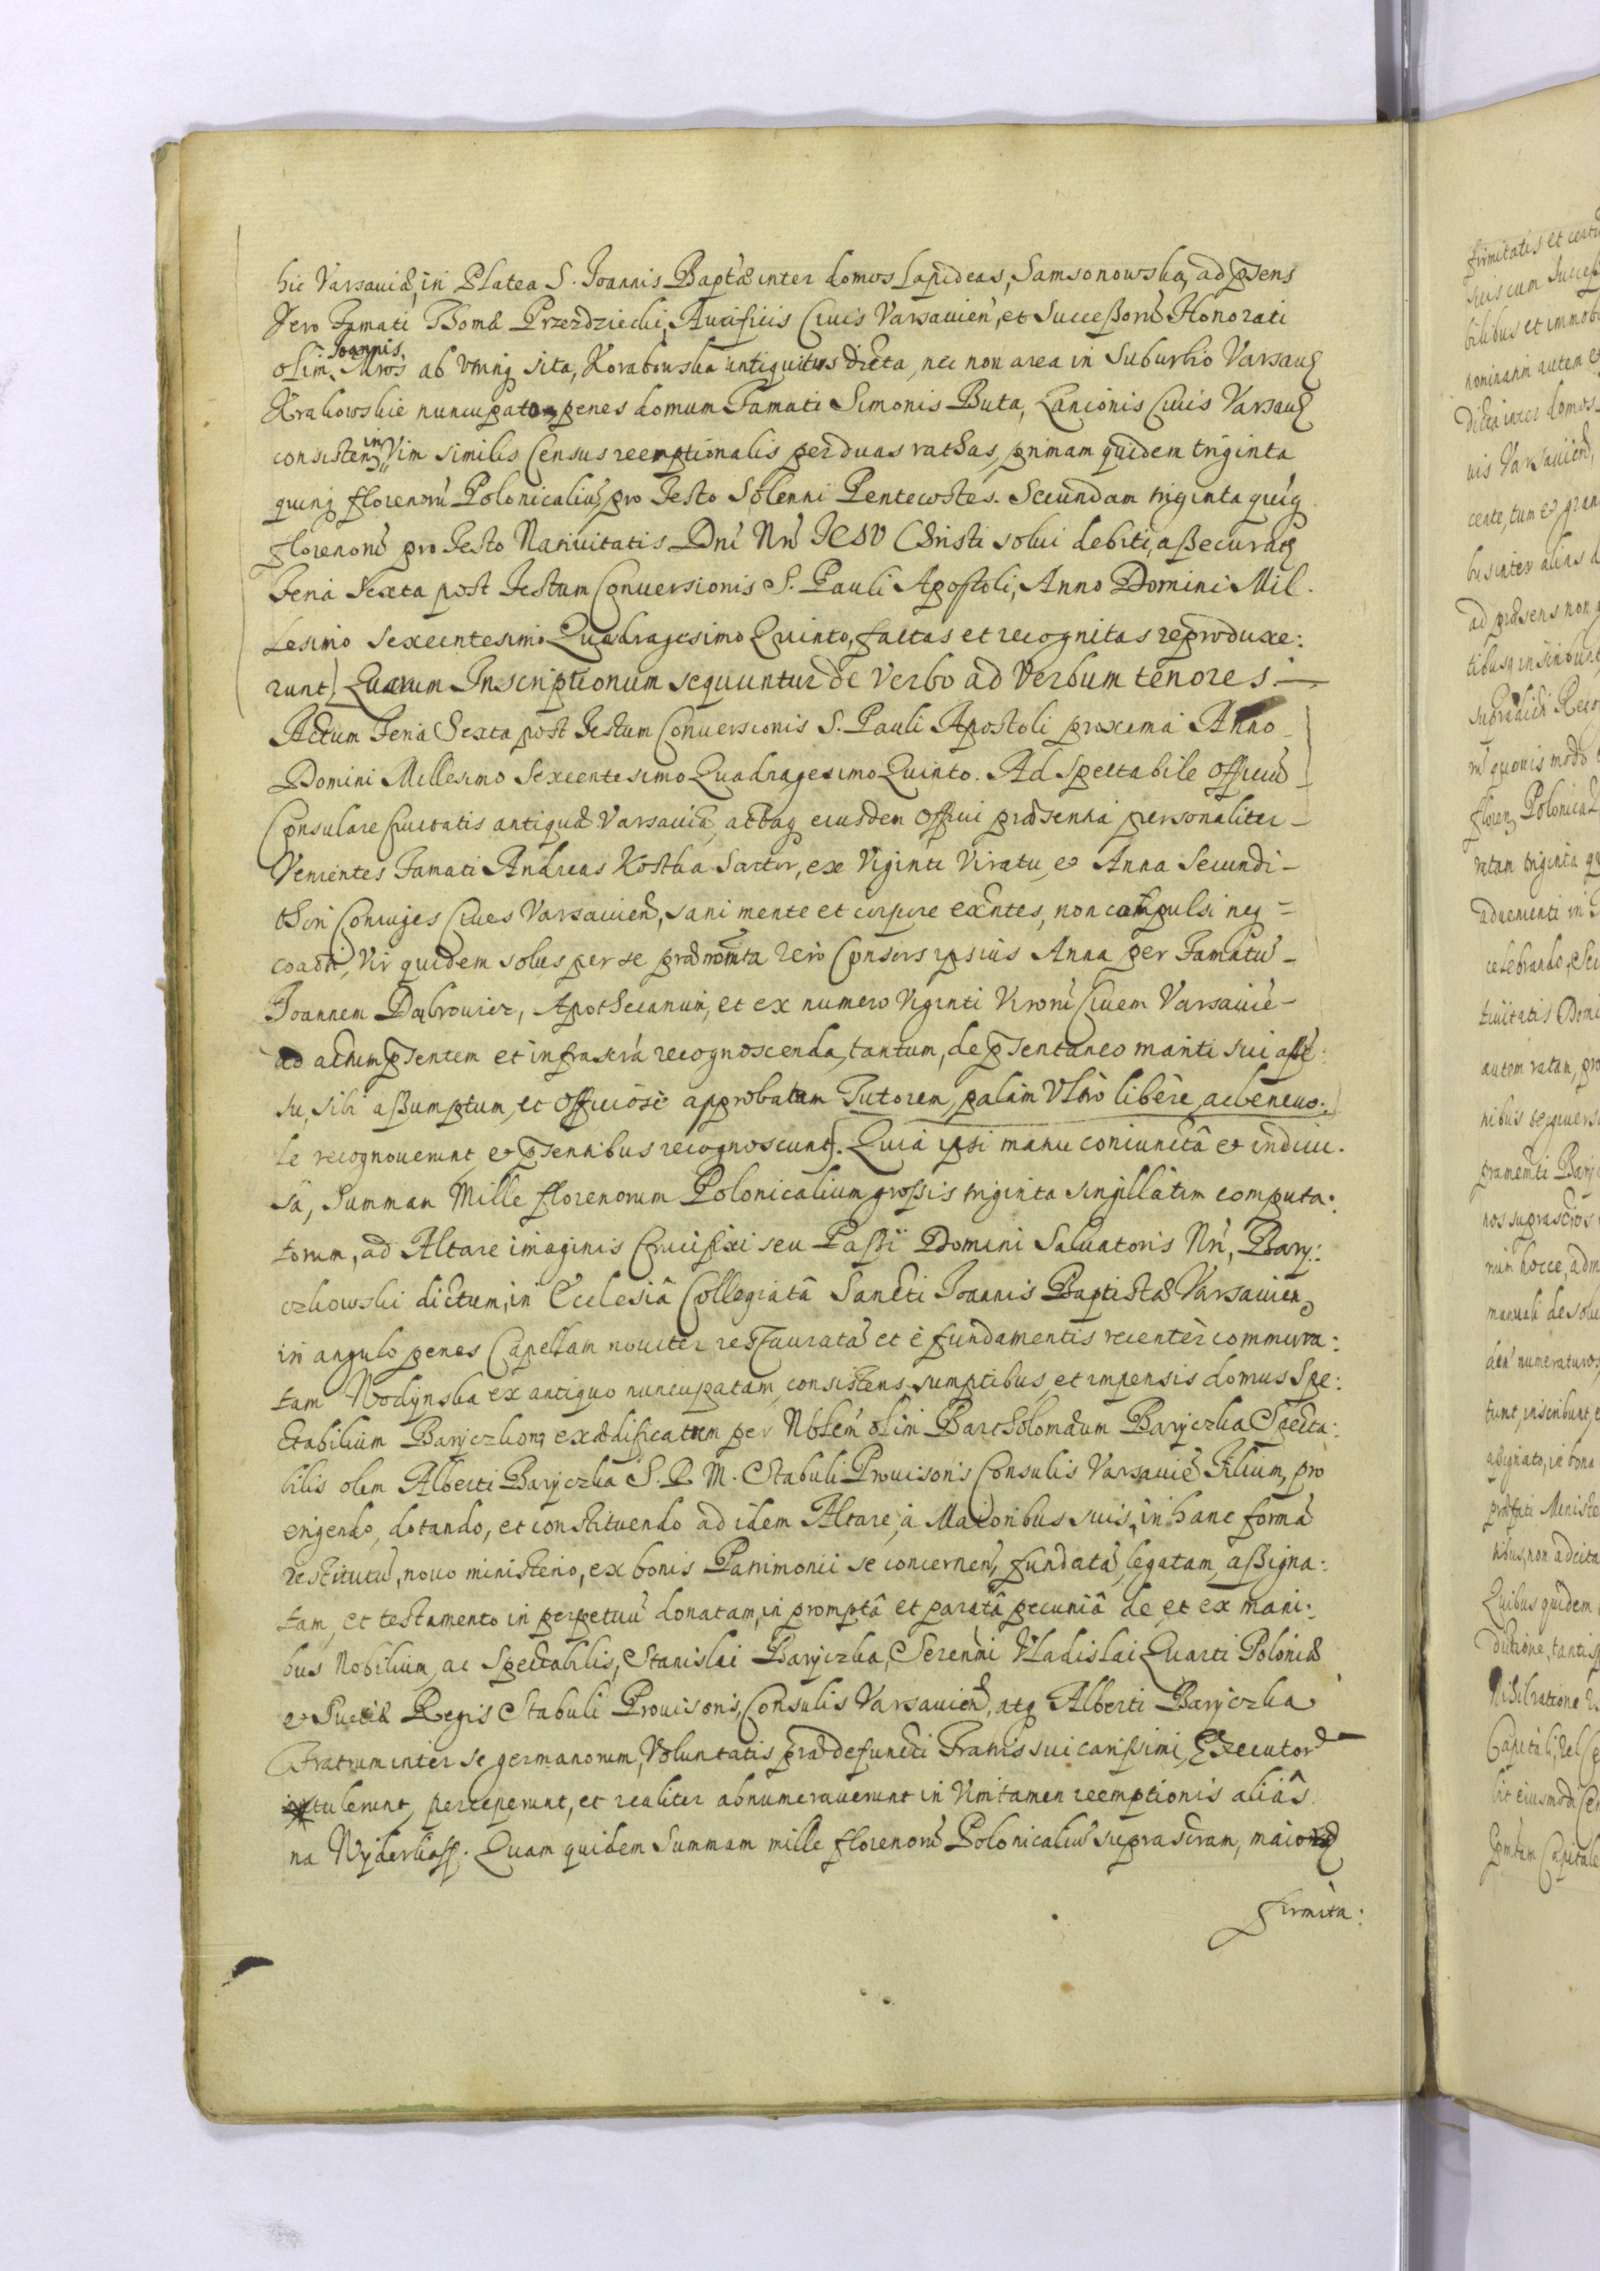 hic Varsaviæ, in Platea S. Joannis Baptæ inter domos Lapideas, Samsonowska, ad psens
Vero Famati Thomæ Przezdziecki, Aurificis Civis Varsavien, et Successorū Honorati
olim Joannis Mros ab utrinq sita, Korabowska antiquitus dicta, nec non area in Suburbio Varsav
Krakowskie nuncupato, penes domum Famati Simonis Buta, Lanionis Civis Varsav
consisten in Vim similis Census reemptionalis per duas rathas, primam quidem triginta
quinq florenorū Polonicaliū pro Festo Solenni Pentecostes. Secundam triginta quinq
florenorū pro Festo Nativitatis Dni Nri JESU Christi solvi debiti, assecurat
Feria Sexta post Festum Conversionis S. Pauli Apostoli, Anno Domini Mil.
lesimo Sexcentesimo Quadragesimo Quinto, factas et recognitas reproduxe:
runt, Quarum Inscriptionum sequuntur de Verbo ad Verbum tenores.—
Actum Feria Sexta post Festum Conversionis S. Pauli Apostoli proxima Anno
Domini Millesimo Sexcentesimo Quadragesimo Quinto. Ad Spectabile Officiū
Consulare Civitatis antiquæ Varsaviæ, atque eiusdem Officii præsentia personaliter
Venientes Famati Andreas Kostka Sartor, ex Viginti Viratu, et Anna Secundi-
thori Coniuges Cives Varsavien, sani mente et corpore exntes, non compulsi neq =
coacti, Vir quidem solus per se prænomta vero Consors ipsius Anna per Famatū
Joannem Dąbrowicz, Apothecarium, et ex numero Viginti Virorū Civem Varsavie
ad actum psentem et infrascta recognoscenda, tantum, de psentaneo mariti sui asse:
su, sibi assumptum, et officiose approbatum Tutorem, palàm Ultrò libère, ac benevo:
le recognoverunt, et psentibus recognoscunt. Quia ipsi manu coniunctâ et indivi.
sâ, Summam Mille florenorum Polonicalium grossis triginta singillàtim computa:
torum, ad Altare imaginis Crucifixi seu Passi Domini Salvatoris Nri, Bary:
czkowski dictum, in Ecclesiâ Collegiatâ Sancti Joannis Baptistæ Varsavien
in angulo penes Capellam noviter restauratā et è fundamentis recentèr commura:
tam Wodynska ex antiquo nuncupatam, consistens sumptibus, et impensis domus Spe:
ctabilium Baryczkorū exædificatum per Nobilem olim Bartholomæum Baryczka Specta:
bilis olim Alberti Baryczka S. R. M. Stabuli Provisoris Consulis Varsavie Filium, pro
erigendo, dotando, et constituendo ad idem Altare, à Maioribus suis, in hanc formā
restitutū, novo ministerio, ex bonis Patrimonii se concernen, fundatā, legatam, assigna:
tam, et testamento in perpetuū donatam, in promptâ et paratâ pecuniâ de et ex mani:
bus Nobilium, ac Spectabilis, Stanislai Baryczka, Serenmi Vladislai Quarti Poloniæ
et Sueciæ Regis Stabuli Provisoris, Consulis Varsavien, atq Alberti Baryczka
Fratrum inter se germanorum, Voluntatis prædefuncti Fratris sui carissimi, Executor
tulerunt, perceperunt, et realiter abnumeraverunt in Vim tamen reemptionis aliâs
na Wyderkoff. Quam quidem Summam mille florenorū Polonicaliū suprascram, maioris
firmita: